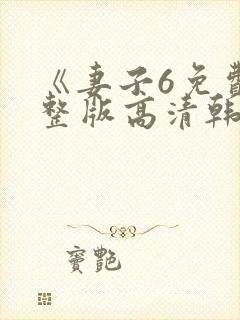 《妻子6免費
整版高清韩
竇艷